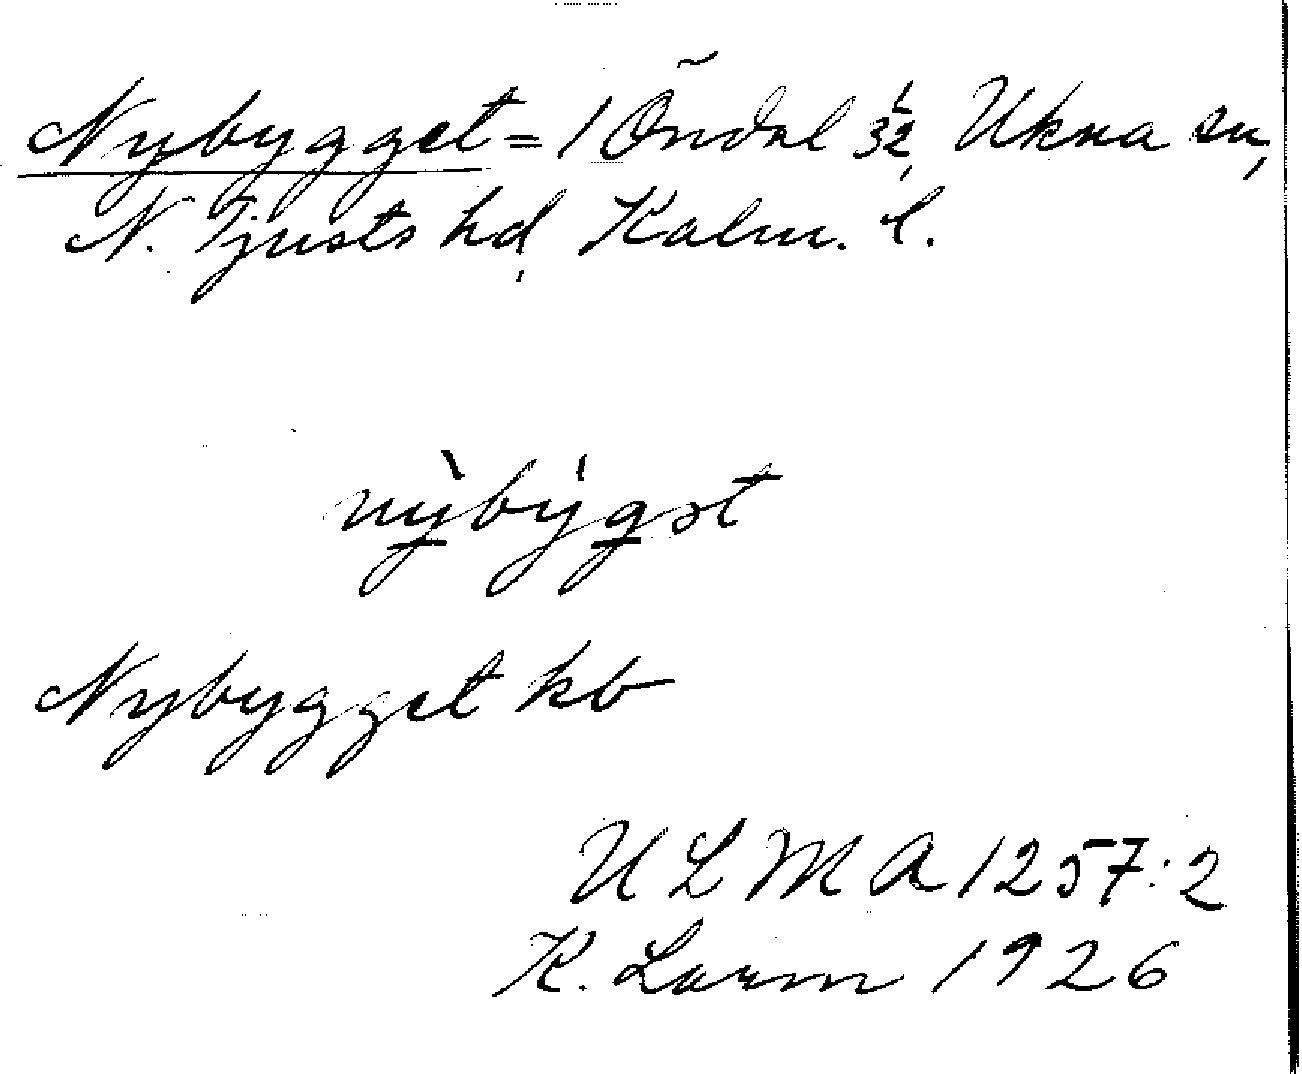 Nybygget = 1 Öndal 3/2, Ukna sn,
N. Tjusts hd, Kalm. l.
nỳbýgət
Nybygget kb
ULMA 1257:2
K. Larm 1926